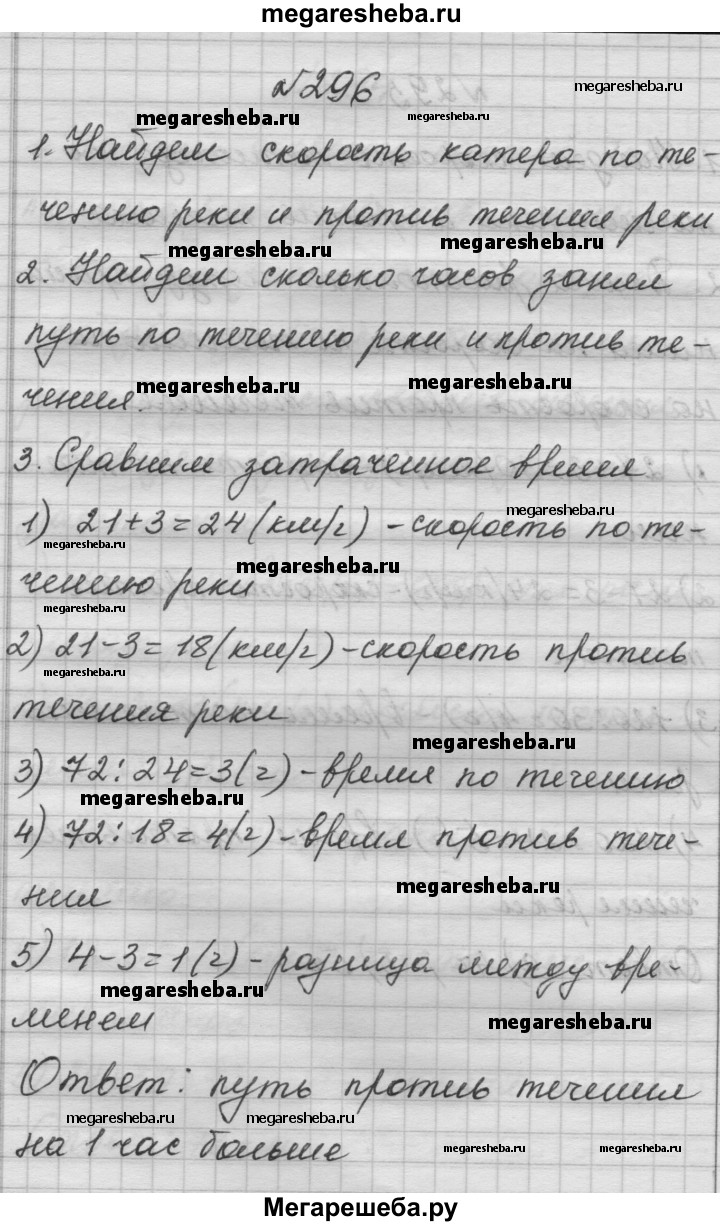 megaresheba.ru
№296
megaresheba.ru
megaresheba.ru
megaresheba.ru
1. Найдем скорость катера по те-
чению реки и против течения реки
megaresheba.ru
megaresheba.ru
2. Найдем сколько часов занял
путь по течению реки и против те-
чения.
megaresheba.ru
megaresheba.ru
3. Сравним затраченное время
1) 21+3=24(км/г) -скорость по те-
megaresheba.ru
megaresheba.ru
megaresheba.ru
чению реки
megaresheba.ru
2) 21-3=18(км/г) -скорость против
megaresheba.ru
течения реки
megaresheba.ru
3) 72:24=3(г) -время по течению
megaresheba.ru
4) 72:18=4(г) -время против тече-
ния
megaresheba.ru
5) 4-3=1(г) -разница между вре-
megaresheba.ru
менем
megaresheba.ru
Ответ: путь против течения
megaresheba.ru
megaresheba.ru
на 1 час больше
megaresheba.ru
megaresheba.ru
Мегарешеба.ру